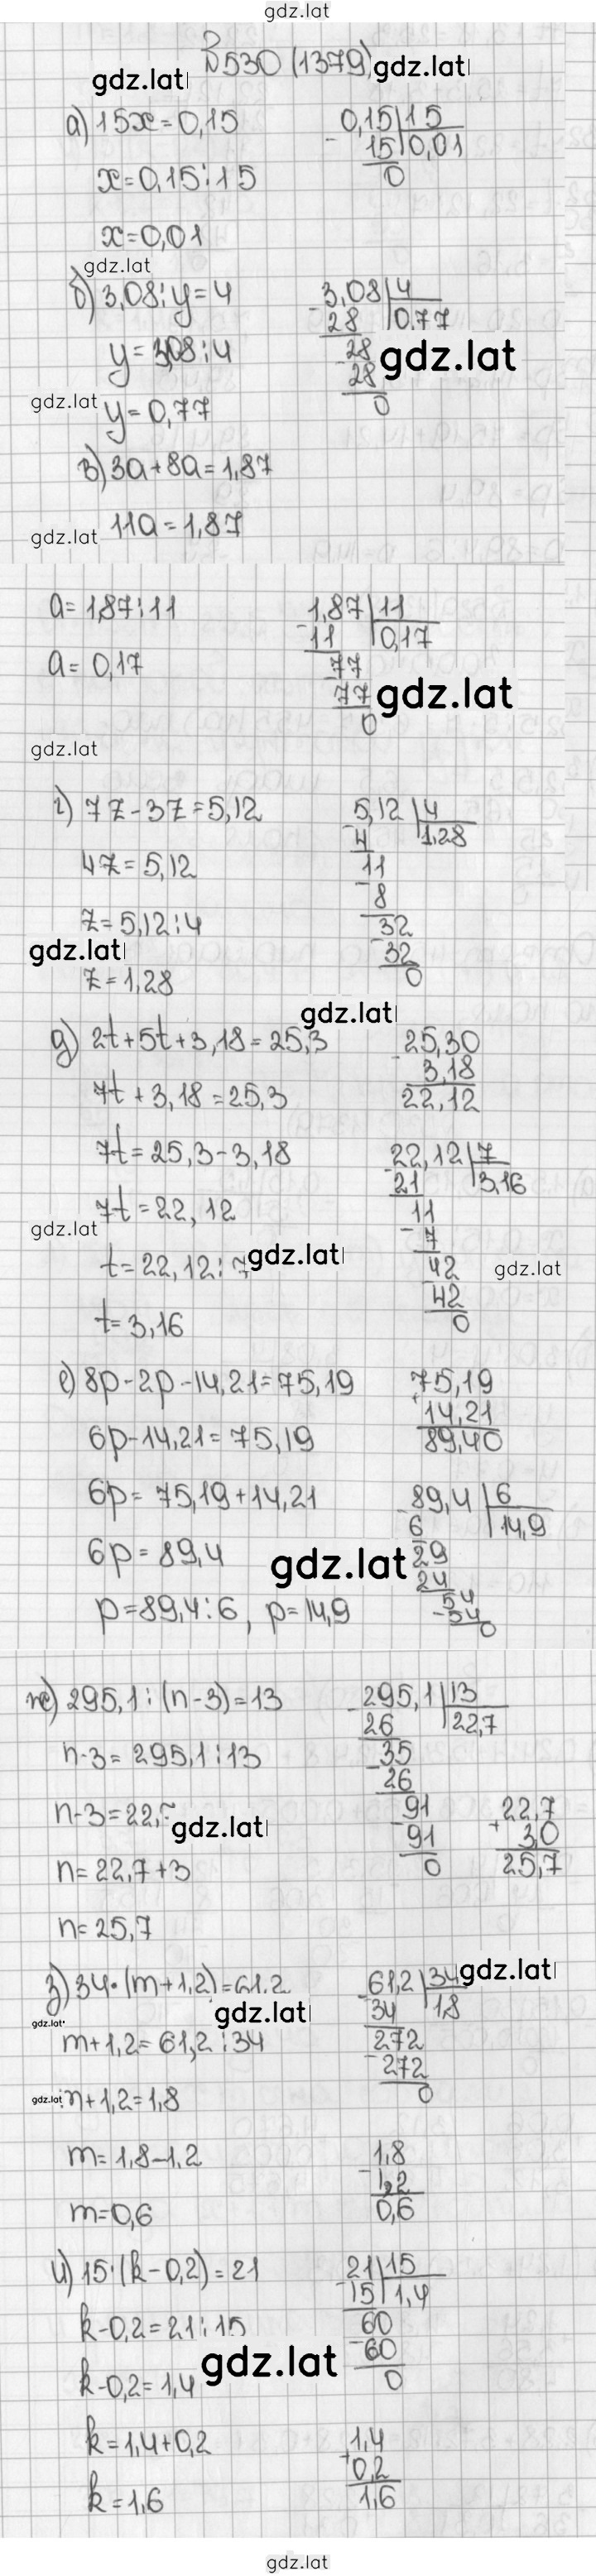 gdz.lat
№530 (1379)
gdz.lat
gdz.lat
а) 15x = 0,15
0,15 | 15
- 15 | 0,01
0
x = 0,15 : 15
x = 0,01
gdz.lat
б) 3,08 : y = 4
3,08 | 4
- 28 | 0,77
28
- 28
0
gdz.lat
y = 3,08 : 4
gdz.lat
y = 0,77
в) 3a + 8a = 1,87
gdz.lat
11a = 1,87
a = 1,87 : 11
1,87 | 11
- 11 | 0,17
77
- 77
0
gdz.lat
a = 0,17
gdz.lat
г) 7z - 3z = 5,12
5,12 | 4
- 4 | 1,28
11
- 8
32
- 32
0
4z = 5,12
z = 5,12 : 4
gdz.lat
z = 1,28
gdz.lat
д) 2t + 5t + 3,18 = 25,3
- 25,30
3,18
22,12
7t + 3,18 = 25,3
7t = 25,3 - 3,18
22,12 | 7
- 21 | 3,16
11
- 7
42
- 42
0
7t = 22,12
gdz.lat
t = 22,12 : 7
gdz.lat
gdz.lat
t = 3,16
е) 8p - 2p - 14,21 = 75,19
75,19
+ 14,21
89,40
6p - 14,21 = 75,19
6p = 75,19 + 14,21
89,4 | 6
- 6 | 14,9
29
24
54
- 54
0
6p = 89,4
gdz.lat
p = 89,4 : 6, p = 14,9
ж) 295,1 : (n - 3) = 13
295,1 | 13
- 26 | 22,7
35
- 26
91
- 91
0
n - 3 = 295,1 : 13
n - 3 = 22,
gdz.lat
22,7
+ 3,0
25,7
n = 22,7 + 3
n = 25,7
з) 34 · (m + 1,2) = 61,2
61,2 | 34
- 34 | 1,8
272
- 272
0
gdz.lat
gdz.lat
gdz.lat
m + 1,2 = 61,2 : 34
gdz.lat
m + 1,2 = 1,8
m = 1,8 - 1,2
1,8
- 1,2
0,6
m = 0,6
и) 15 · (k - 0,2) = 21
21 | 15
- 15 | 1,4
60
- 60
0
k - 0,2 = 21 : 15
gdz.lat
k - 0,2 = 1,4
k = 1,4 + 0,2
1,4
+ 0,2
1,6
k = 1,6
gdz.lat